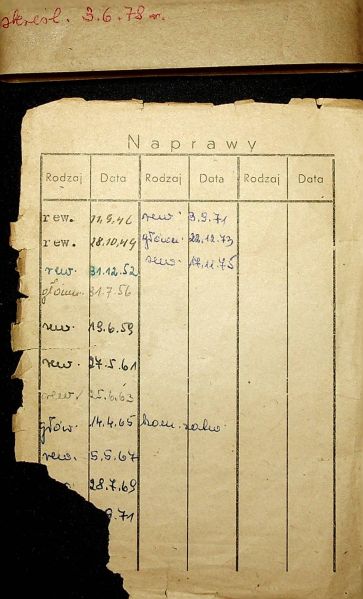 skreśl. 3.6.78 r.
Naprawy
Rodzaj Data Rodzaj Data Rodzaj Data
rew. 14.9.46 rew. 3.9.71
rew. 28.10.49 główn. 22.12.73
rew. 31.12.52 rew. 17.11.75
główn. 31.7.56
rew. 19.6.59
rew. 27.5.61
rew. 25.6.63
głów. 14.4.65
rew. 5.5.67
28.7.69
9.71